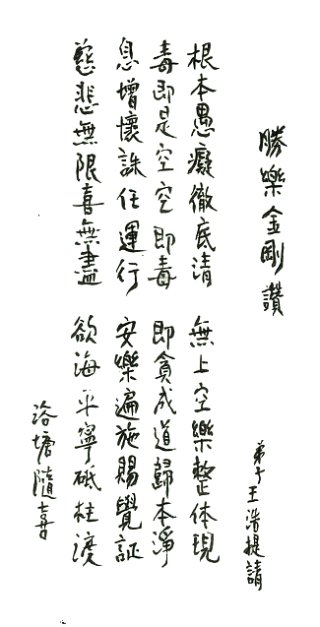 勝樂金剛讚
弟子王浩提請
根本愚癡徹底清 無上空樂整体現
毒即是空空即毒 即貪成道歸本淨
息增懷誅任運行 安樂遍施賜覺証
慈悲無限喜無盡 欲海平寧砥柱渡
浴塘隨喜